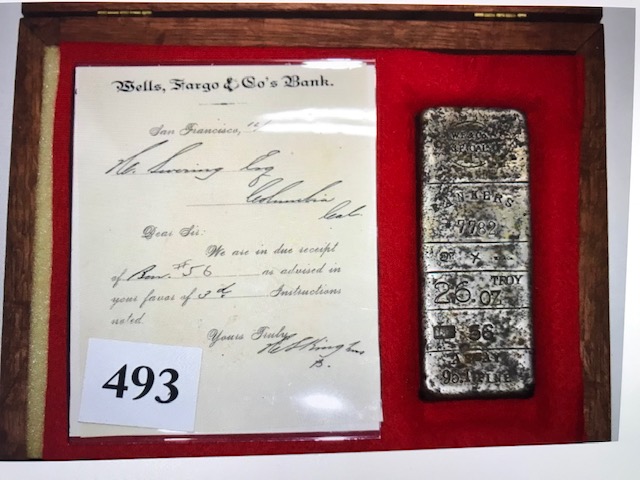 Wells, Fargo & Co's Bank.
San Francisco,
Esq
Columbia
Cal.
Dear Sir:
We are in due receipt
of Box #56 as advised in
your favor of 3d Instructions
noted.
Yours Truly
B.
493
7782
TROY
26 OZ
56
FINE